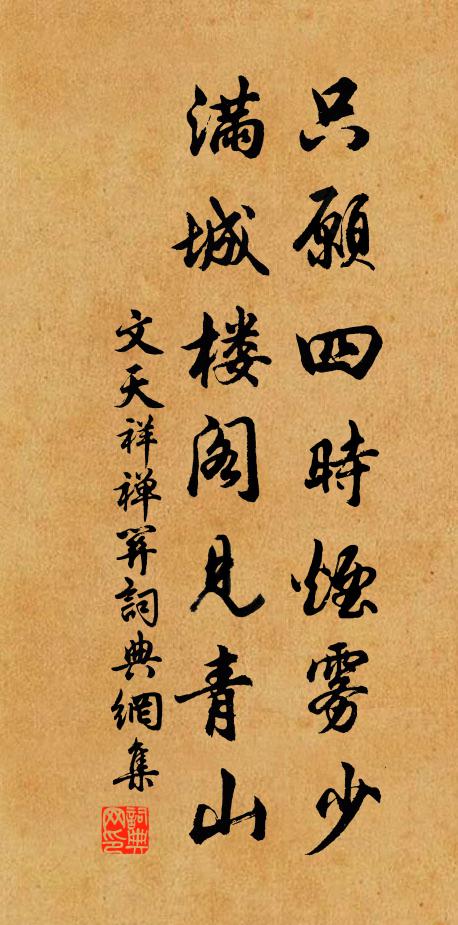 只願四時煙雾少
滿城楼阁見青山
文天祥禅詞典網集
詞典网印